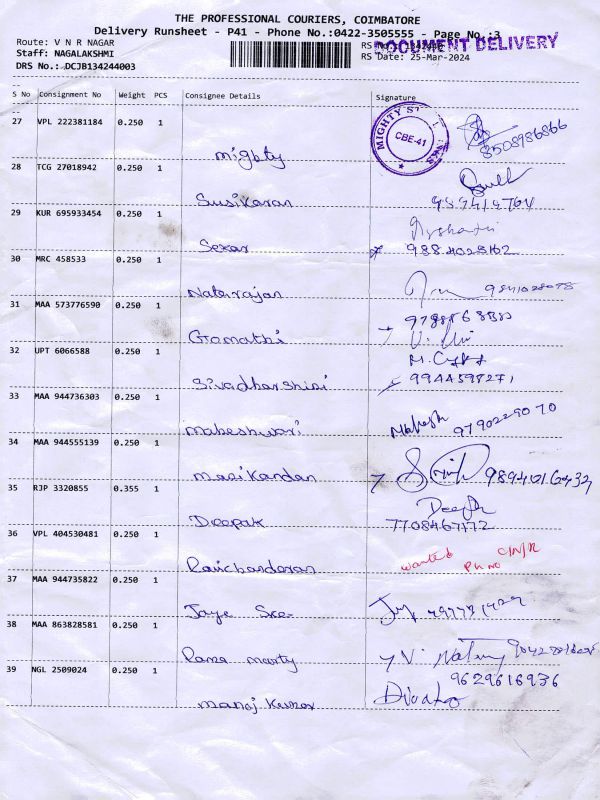 THE PROFESSIONAL COURIERS, COIMBATORE
Delivery Runsheet - P41 - Phone No.:0422-3505555 - Page No.:3
Route: V N R NAGAR
DOCUMENT DELIVERY
Staff: NAGALAKSHMI RS Date: 25-Mar-2024
DRS No.: DCJB134244003
S No Consignment No Weight PCS Consignee Details Signature
27 VPL 222381184 0.250 1
MIGHTY CBE-41
mighty 8508986866
28 TCG 27018942 0.250 1
Susikaran
29 KUR 695933454 0.250 1
Sekar
30 MRC 458533 0.250 1
Natarajan
31 MAA 573776590 0.250 1
Gomathi
32 UPT 6066588 0.250 1
Sivadharshini 9944598271
33 MAA 944736303 0.250 1
maheshwari Mahesh 9790229070
34 MAA 944555139 0.250 1
manikandan
35 RJP 3320855 0.355 1
Deepak Deepak
7708467172
36 VPL 404530481 0.250 1
Ravichanderan wanted C/N/R
Ph no
37 MAA 944735822 0.250 1
Jaye Sre
38 MAA 863828581 0.250 1
Rama marty
39 NGL 2509024 0.250 1 9629616936
manoj kumar